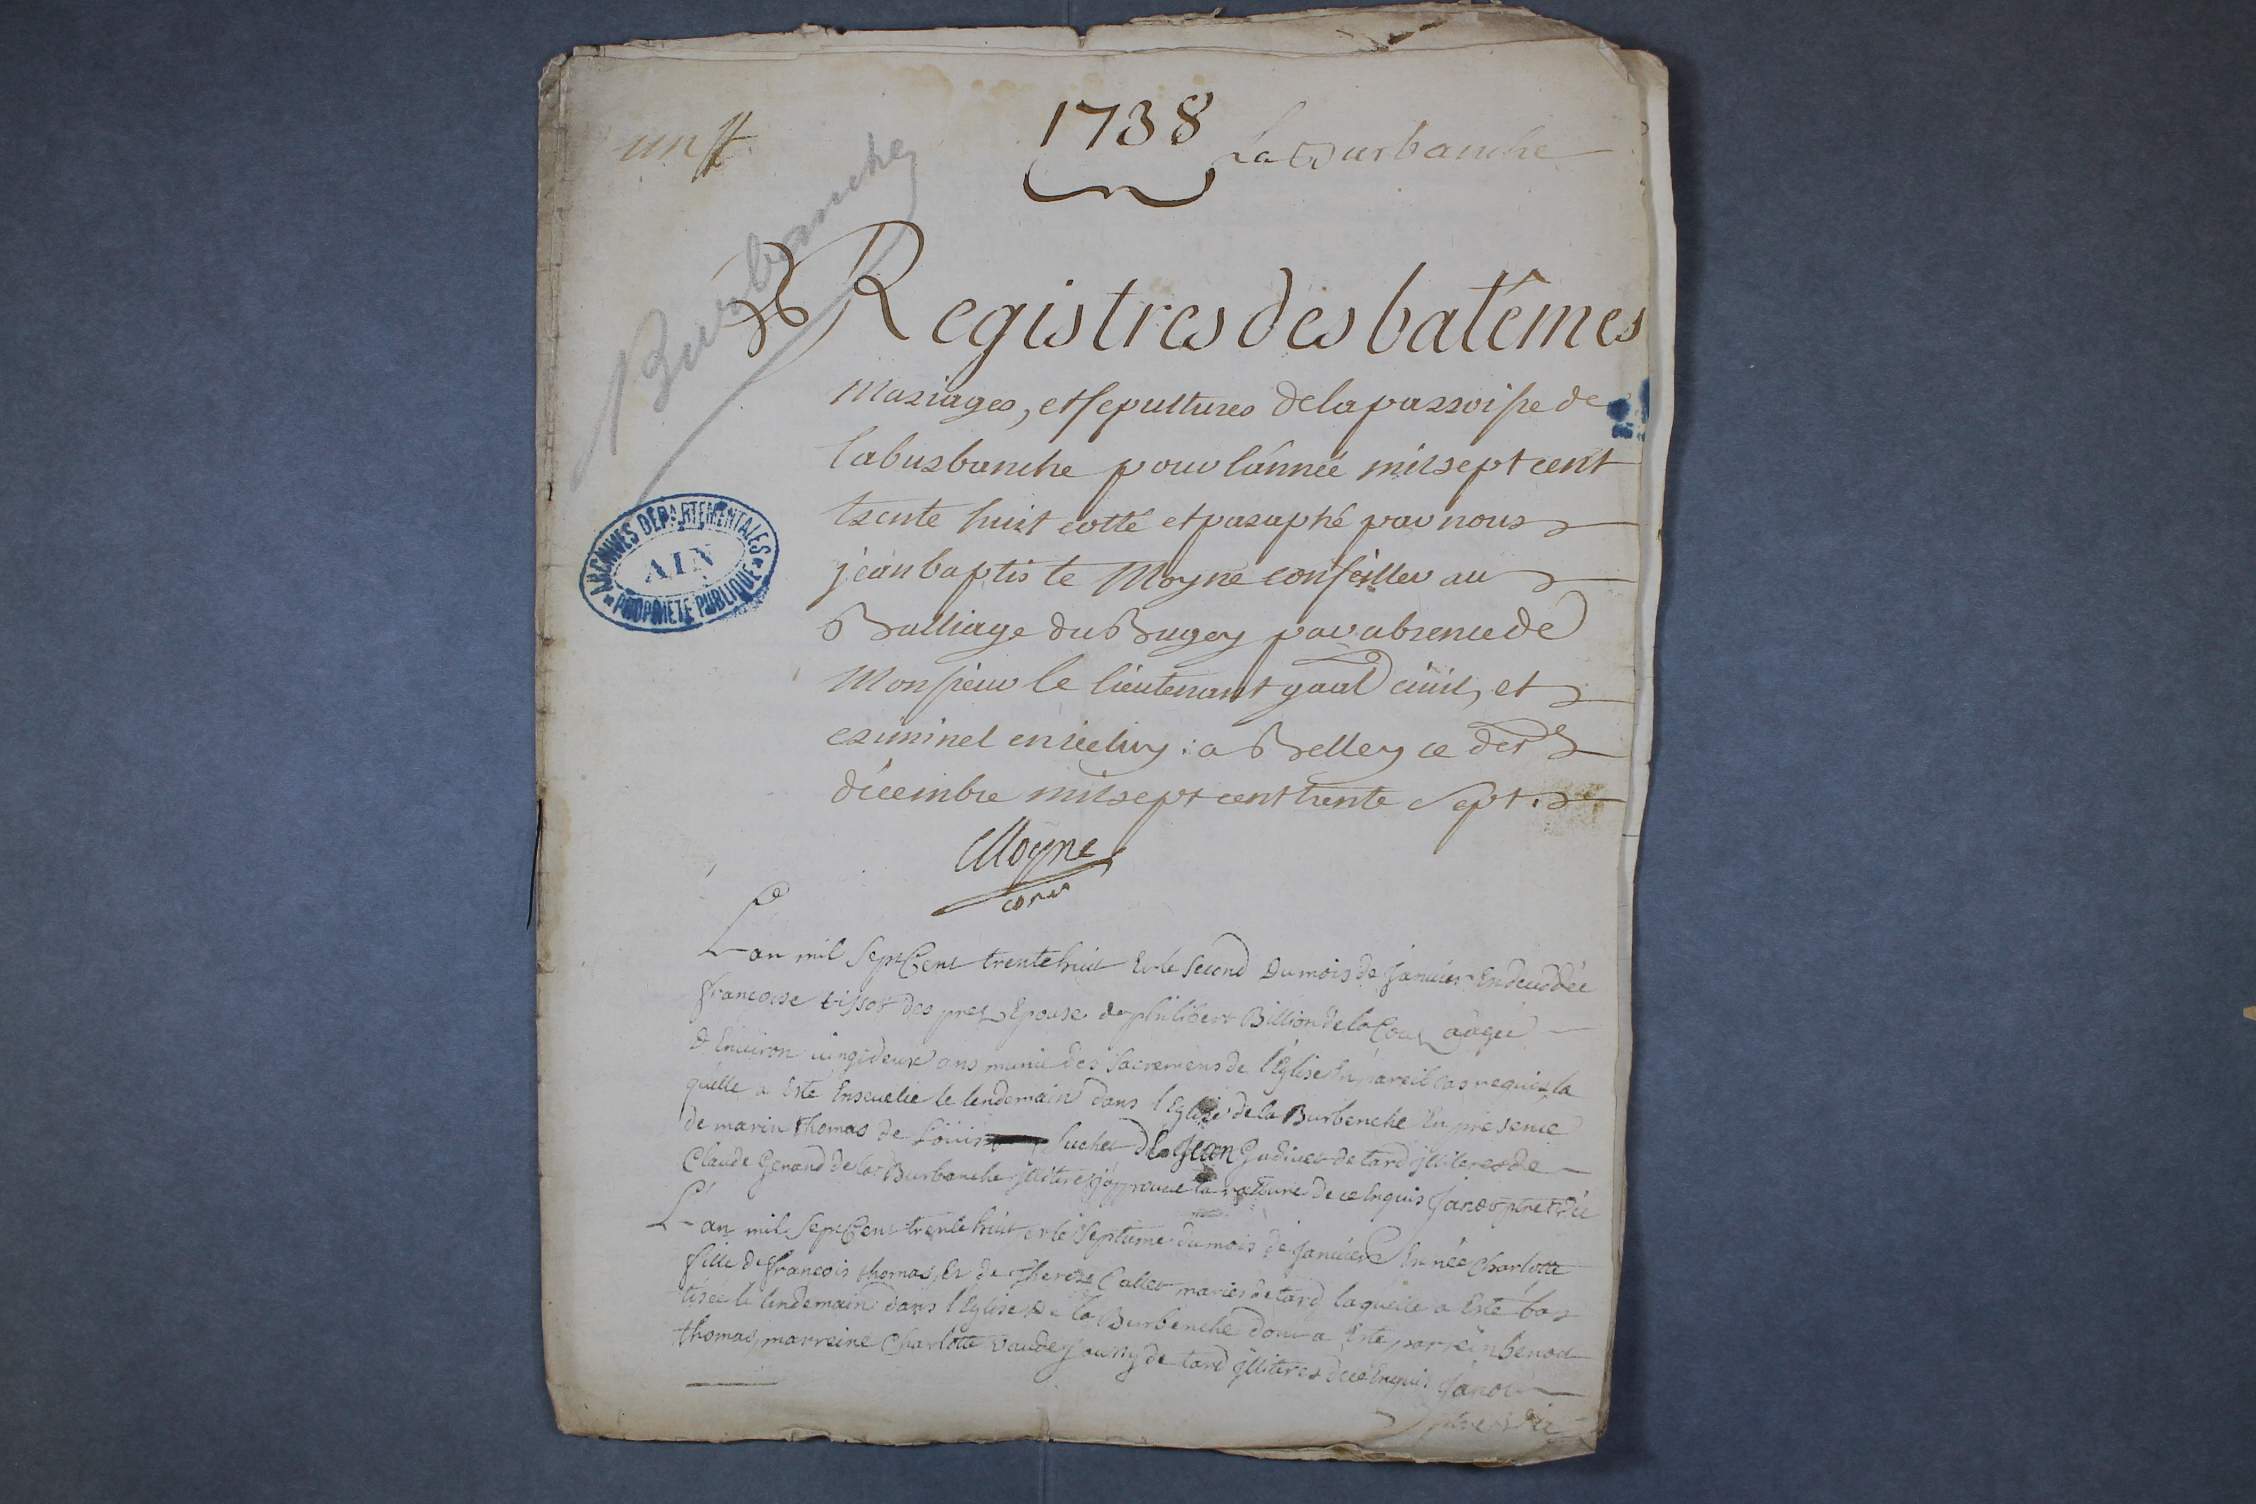 1738
La Burbanche
Burbanche
Registres des batêmes
Mariages, et sepultures de la parroisse de
la burbanche pour l'année mil sept cent
trente huit cotté et paraphé par nous
jean baptiste Moyne conseiller au
Balliage du Bugey par absence de
Monsieur le lieutenant gnal civil, et
criminel en iceluy : a Belley ce der
décembre mil sept cent trente sept.
ARCHIVES DÉPARTEMENTALES
AIN
PROPRIÉTÉ PUBLIQUE
Moyne
L'an mil sept Cent trente huit Et le second Du mois de Janvier En decedée
françoise tissot des prez Epouse de philibert Billion de la Cou aagée
d'Environ vingt deux ans munie des Sacremens de l'Eglise En pareil cas requis la
quelle a Esté Ensevelie le lendemain dans l'Eglise de la Burbenche En présence
de marin thomas de Louis suchet De Jean Gudivet de tard jlliteres de
Claude Gerand de la Burbanche jlliteres j'approuve la rature de ce Enquis Janot ptre vre
L'an mil sept Cent trente huit et le septième du mois de Janvier Est née Charlotte
fille de françois thomas Et de Thereze Callet mariés de tard laquelle a Esté bap
tisée le lendemain dans l'Eglise de la Burbenche dont a Esté parrein benoit
thomas, marreine Charlotte de tard jlliteres de ce Enquis Janot